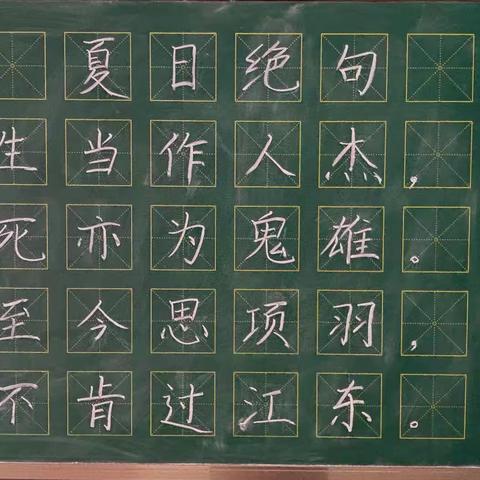 夏日绝句
生当作人杰，
死亦为鬼雄。
至今思项羽，
不肯过江东。